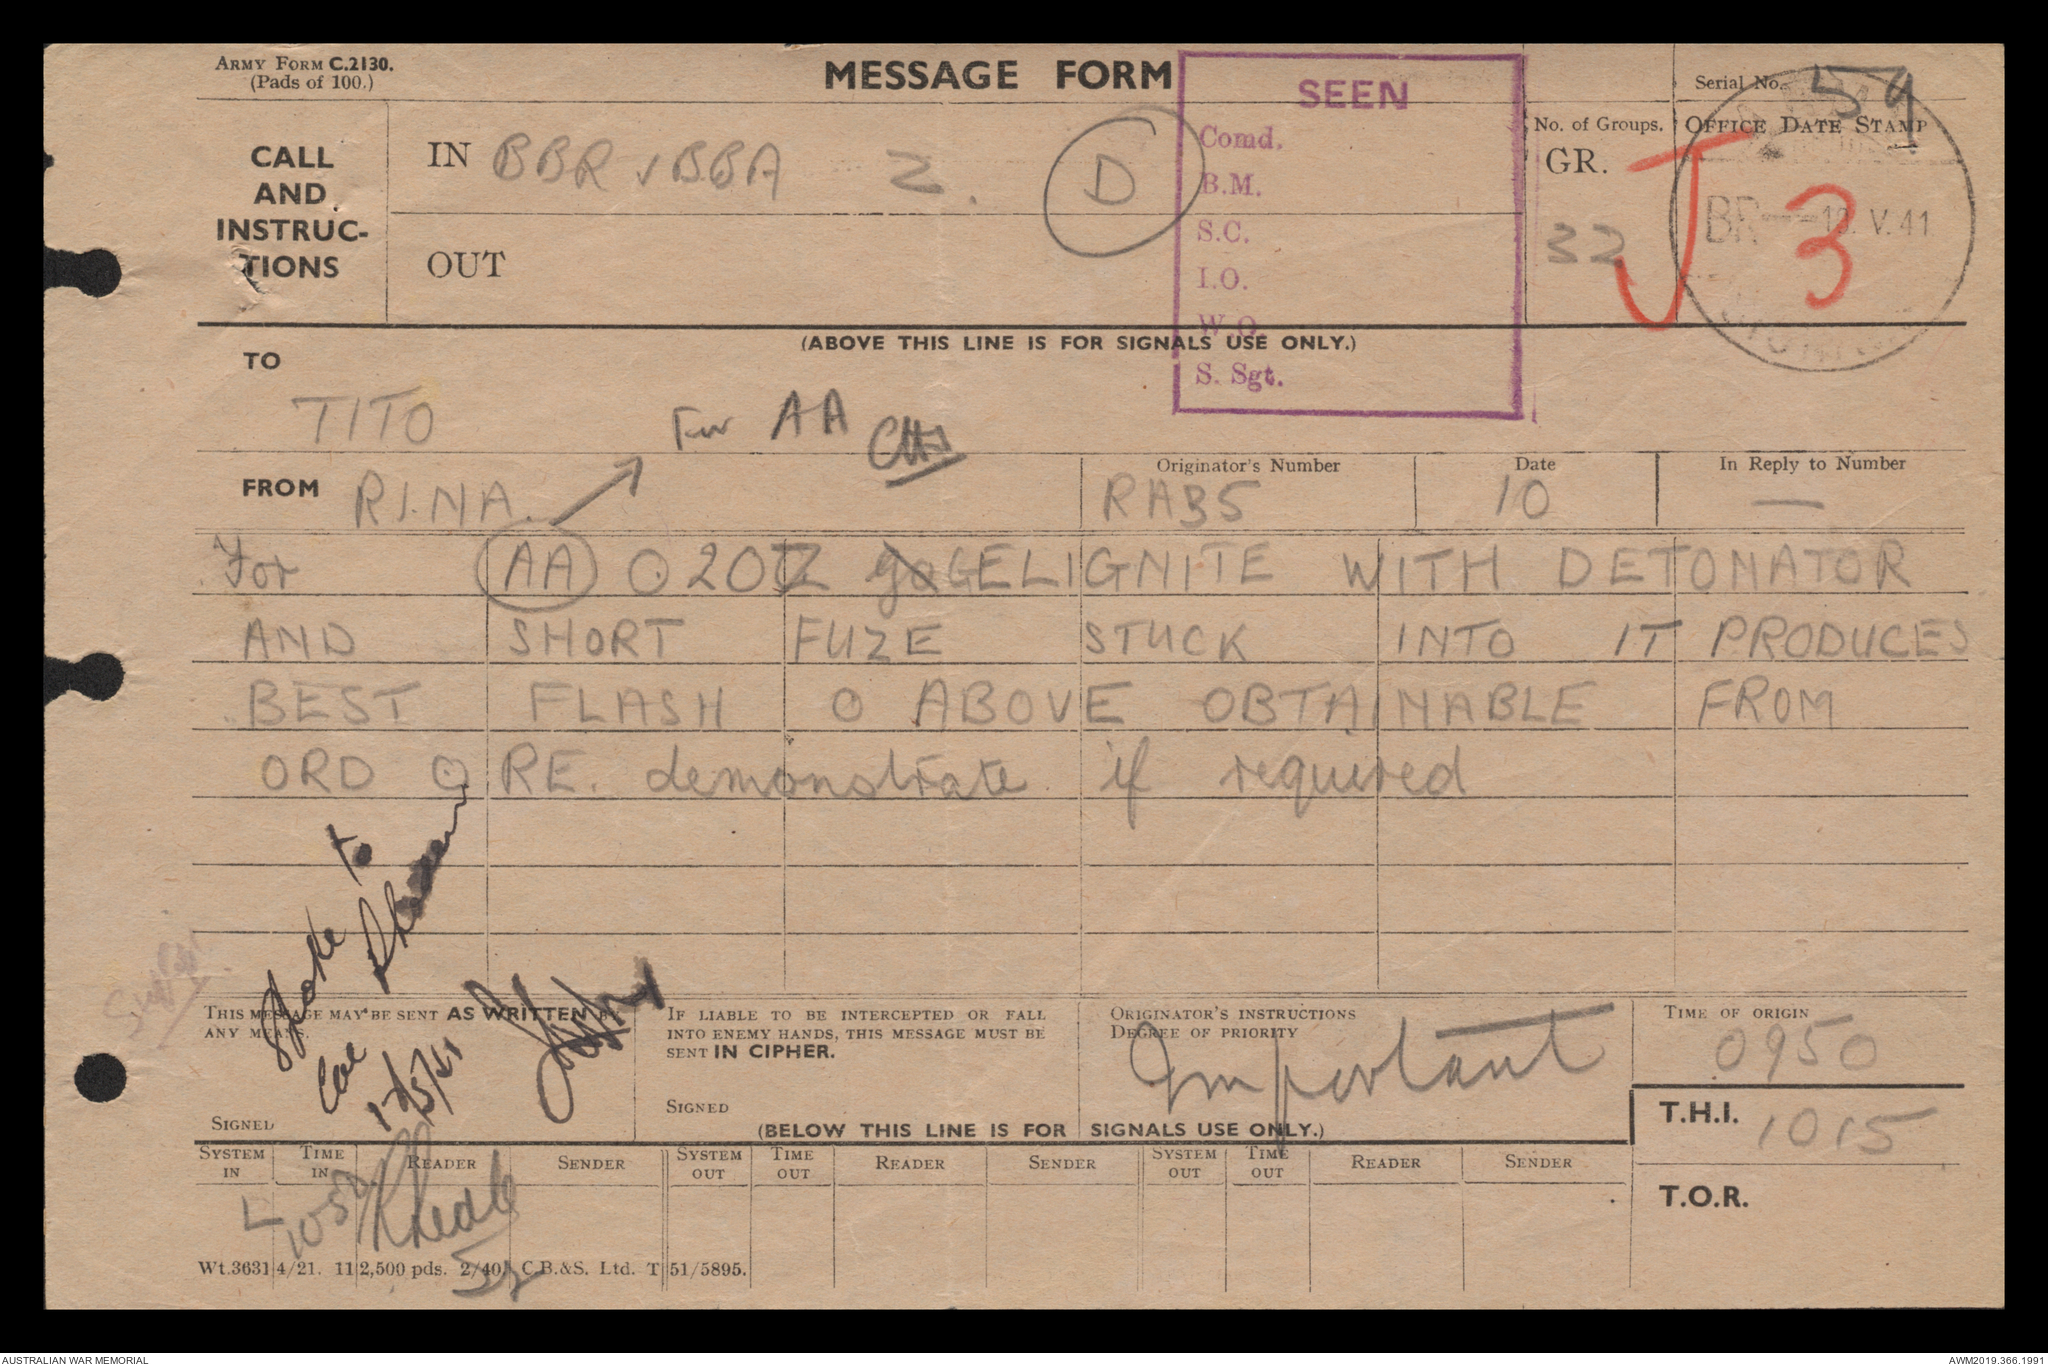 ARMY FORM C.2130.
(Pads of 100.)
MESSAGE FORM
Serial No. 59
CALL
AND
INSTRUC-
TIONS
IN BBR v BBA Z. D
OUT
SEEN
Comd.
B.M.
S.C.
I.O.
W.O.
S. Sgt.
No. of Groups.
GR.
32
J3
OFFICE DATE STAMP
BR 10. V. 41
(ABOVE THIS LINE IS FOR SIGNALS USE ONLY.)
TO
TITO
For AA
FROM RINA
Originator's Number
RA35
Date
10
In Reply to Number
—
For AA O 2OZ GELIGNITE WITH DETONATOR
AND SHORT FUZE STUCK INTO IT PRODUCES
BEST FLASH O ABOVE OBTAINABLE FROM
ORD O RE. demonstrate if required
Spoke to
THIS MESSAGE MAY BE SENT AS WRITTEN BY
ANY MEANS.
SIGNED
IF LIABLE TO BE INTERCEPTED OR FALL
INTO ENEMY HANDS, THIS MESSAGE MUST BE
SENT IN CIPHER.
SIGNED
ORIGINATOR'S INSTRUCTIONS
DEGREE OF PRIORITY
Important
TIME OF ORIGIN
0950
T.H.I. 1015
T.O.R.
(BELOW THIS LINE IS FOR SIGNALS USE ONLY.)
SYSTEM IN TIME IN READER SENDER SYSTEM OUT TIME OUT READER SENDER SYSTEM OUT TIME OUT READER SENDER
L
Wt.36314/21. 112,500 pds. 2/40. C.B.&S. Ltd. T 51/5895.
AUSTRALIAN WAR MEMORIAL
AWM2019.366.1991